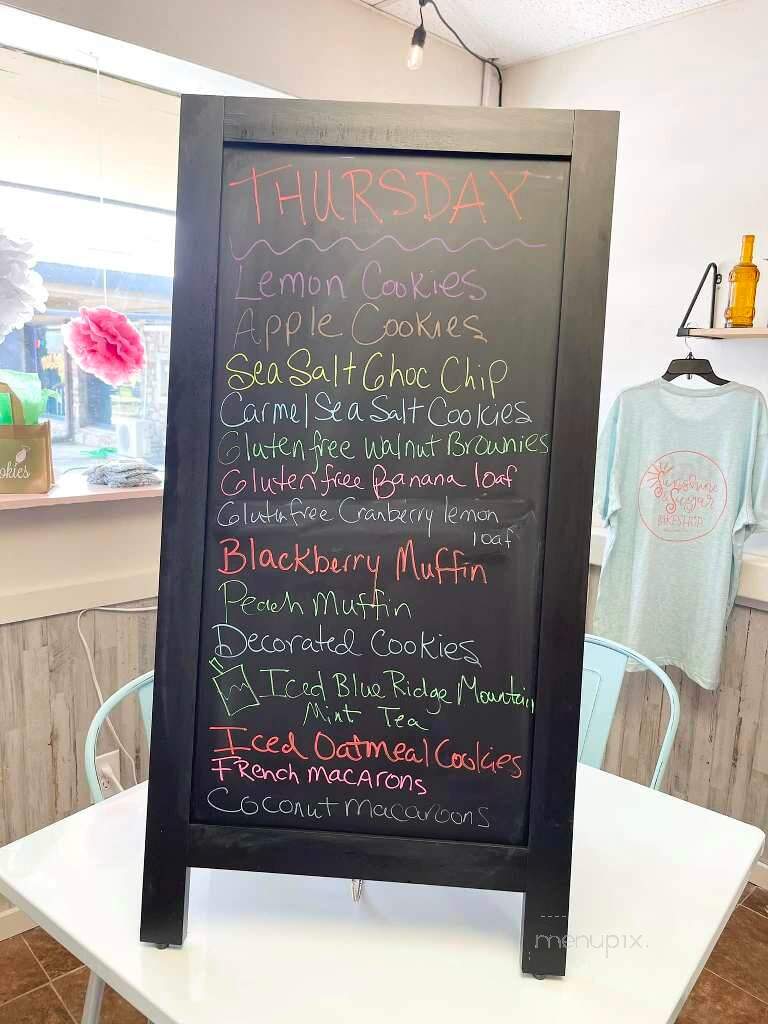 THURSDAY
Lemon Cookies
Apple Cookies
Sea Salt Choc Chip
Carmel Sea Salt Cookies
Gluten free Walnut Brownies
Gluten free Banana loaf
Gluten free Cranberry lemon
loaf
Blackberry Muffin
Peach Muffin
Decorated Cookies
Iced Blue Ridge Mountain
Mint Tea
Iced Oatmeal Cookies
French Macarons
Coconut Macaroons
Sunshine
& Sugar
BAKESHOP
okies
menupix